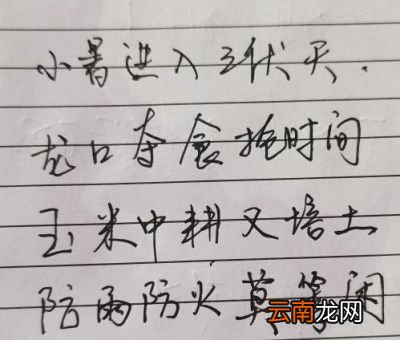 小暑进入三伏天.
龙口夺食抢时间
玉米中耕又培土
防雨防火莫等闲
云南龙网